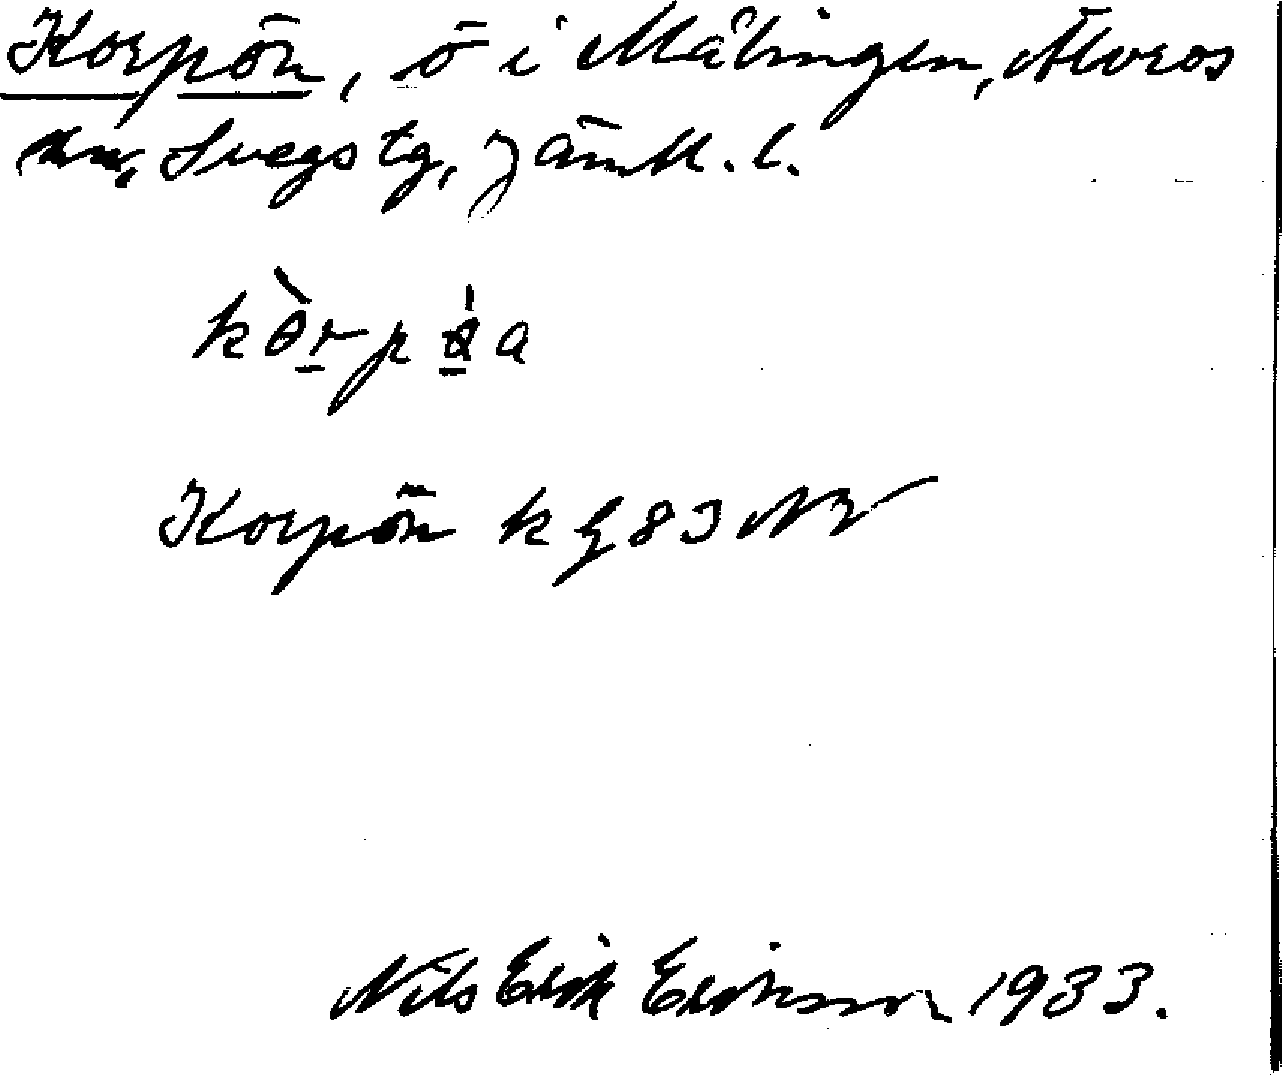 Korpön, ö i Målingen, Älvros
sn, Svegs tg, Jämtl. l.
kòrpøa
Korpön k g 83 NV
Nils Erik Eriksson 1933.